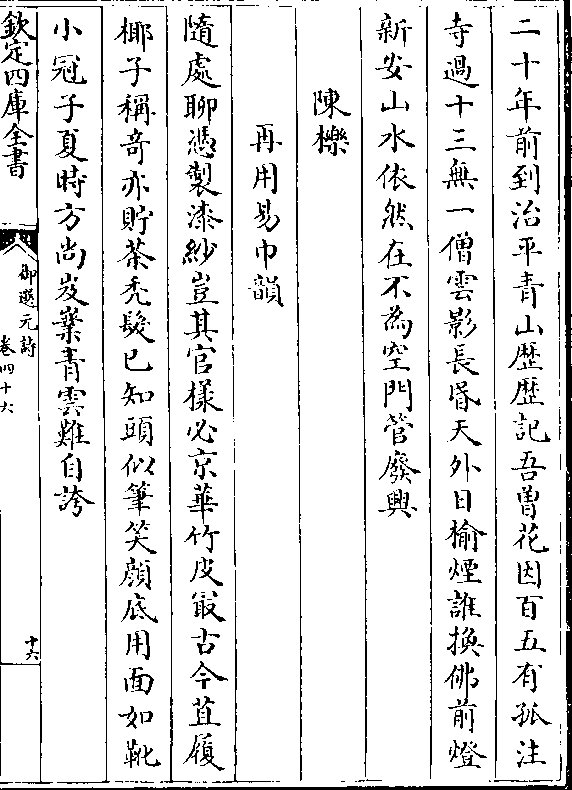 二十年前到治平青山歴歴記吾曽花因百五有孤注
寺過十三無一僧雲影長昏天外日榆煙誰換佛前燈
新安山水依然在不為空門管廢興
陳櫟
再用易巾韻
隨處聊憑製漆紗豈其官樣必京華竹皮最古今苴履
椰子稱奇亦貯茶禿髮已知頭似筆笑顔底用面如靴
小冠子夏時方尚岌嶪青雲難自誇
欽定四庫全書
御選元詩
卷四十六
十六